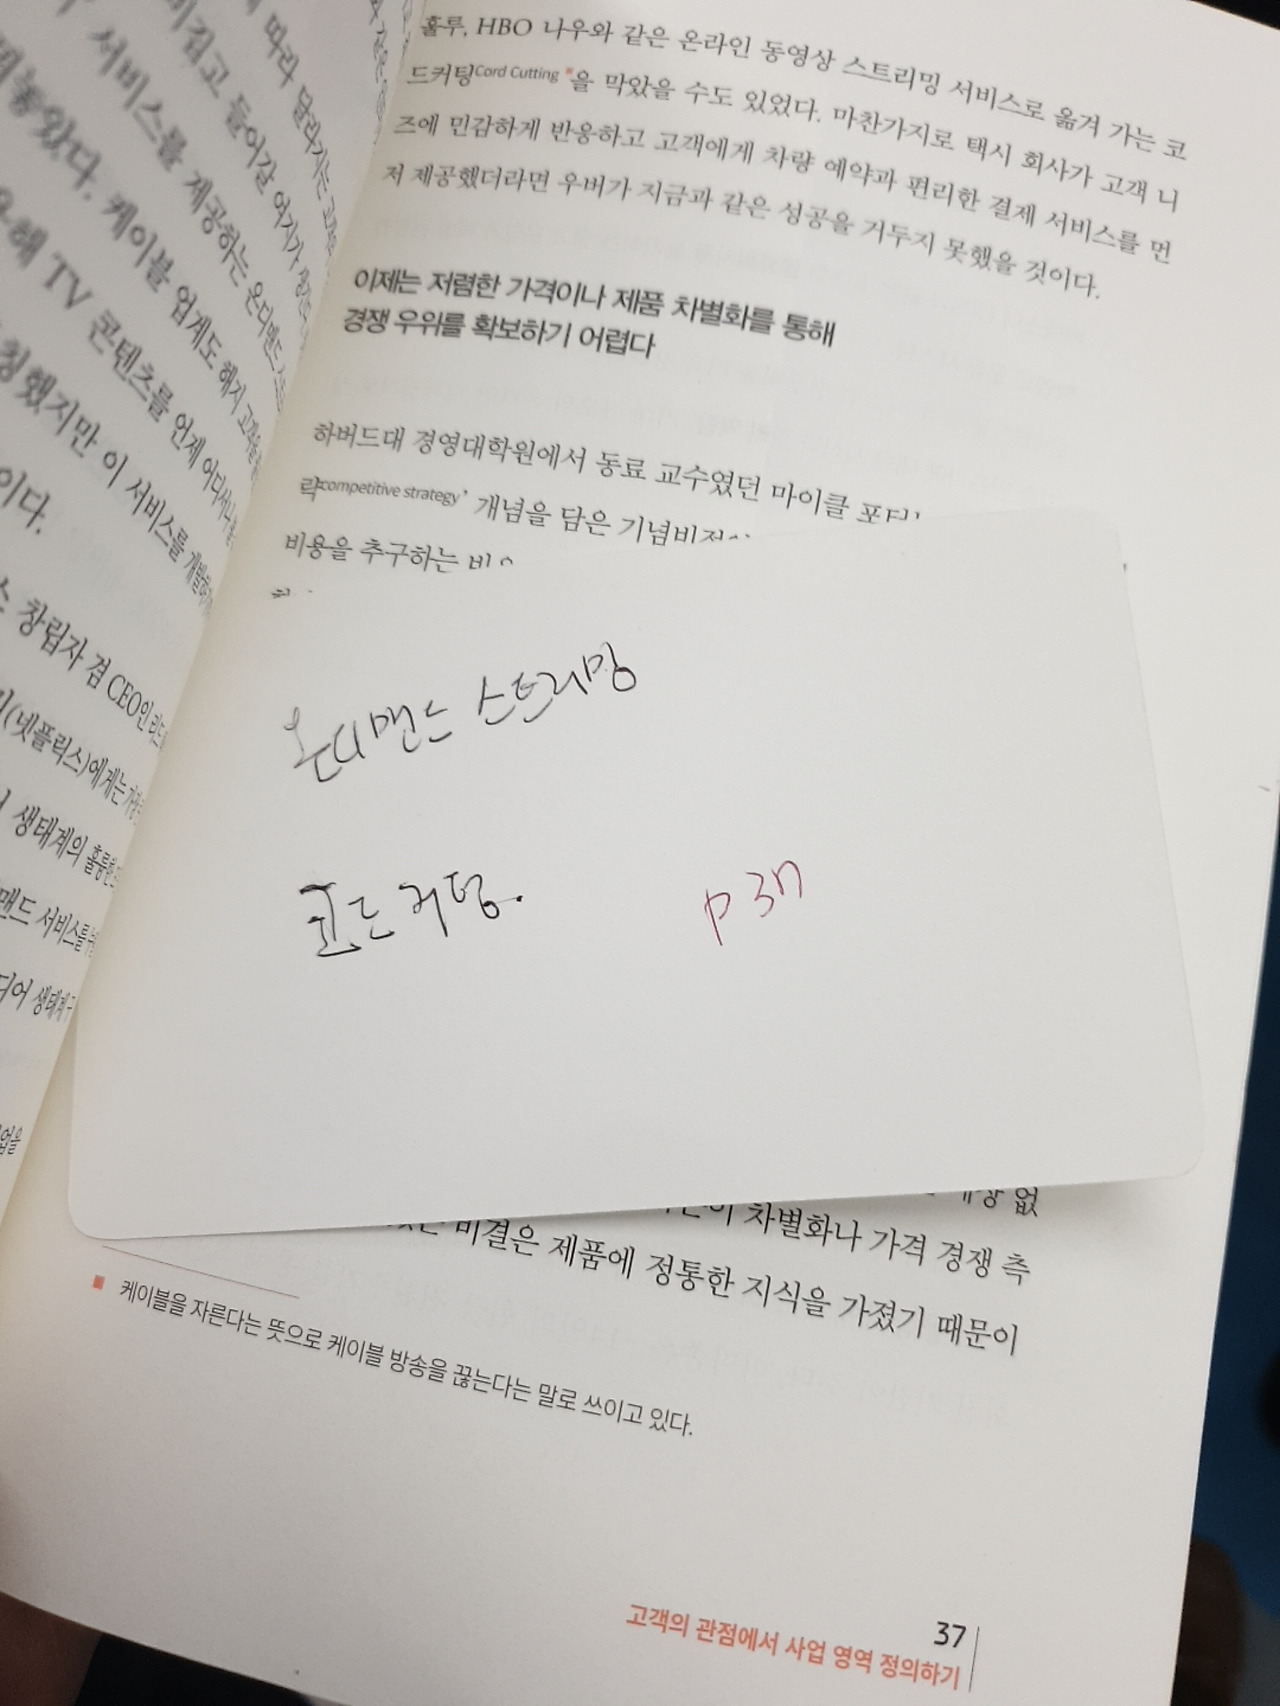 따라 달라지는
비집고 들어갈 여지가
서비스를 제공하는 온디맨드
케이블 업계도 해지 고객을
TV 콘텐츠를 언제 어디서나
칭했지만 이 서비스를 개발하기
이다.
창립자 겸 CEO인 리드
(넷플릭스)에게는
생태계의 훌륭한
맨드 서비스를
디어 생태계
업을
훌루, HBO 나우와 같은 온라인 동영상 스트리밍 서비스로 옮겨 가는 코
드커팅Cord Cutting■을 막았을 수도 있었다. 마찬가지로 택시 회사가 고객 니
즈에 민감하게 반응하고 고객에게 차량 예약과 편리한 결제 서비스를 먼
저 제공했더라면 우버가 지금과 같은 성공을 거두지 못했을 것이다.
이제는 저렴한 가격이나 제품 차별화를 통해
경쟁 우위를 확보하기 어렵다
하버드대 경영대학원에서 동료 교수였던 마이클
략competitive strategy’ 개념을 담은
비용을 추구하는
온디맨드 스트리밍
코드커팅.
p 37
없
차별화나 가격 경쟁 측
비결은 제품에 정통한 지식을 가졌기 때문이
■ 케이블을 자른다는 뜻으로 케이블 방송을 끊는다는 말로 쓰이고 있다.
37
고객의 관점에서 사업 영역 정의하기